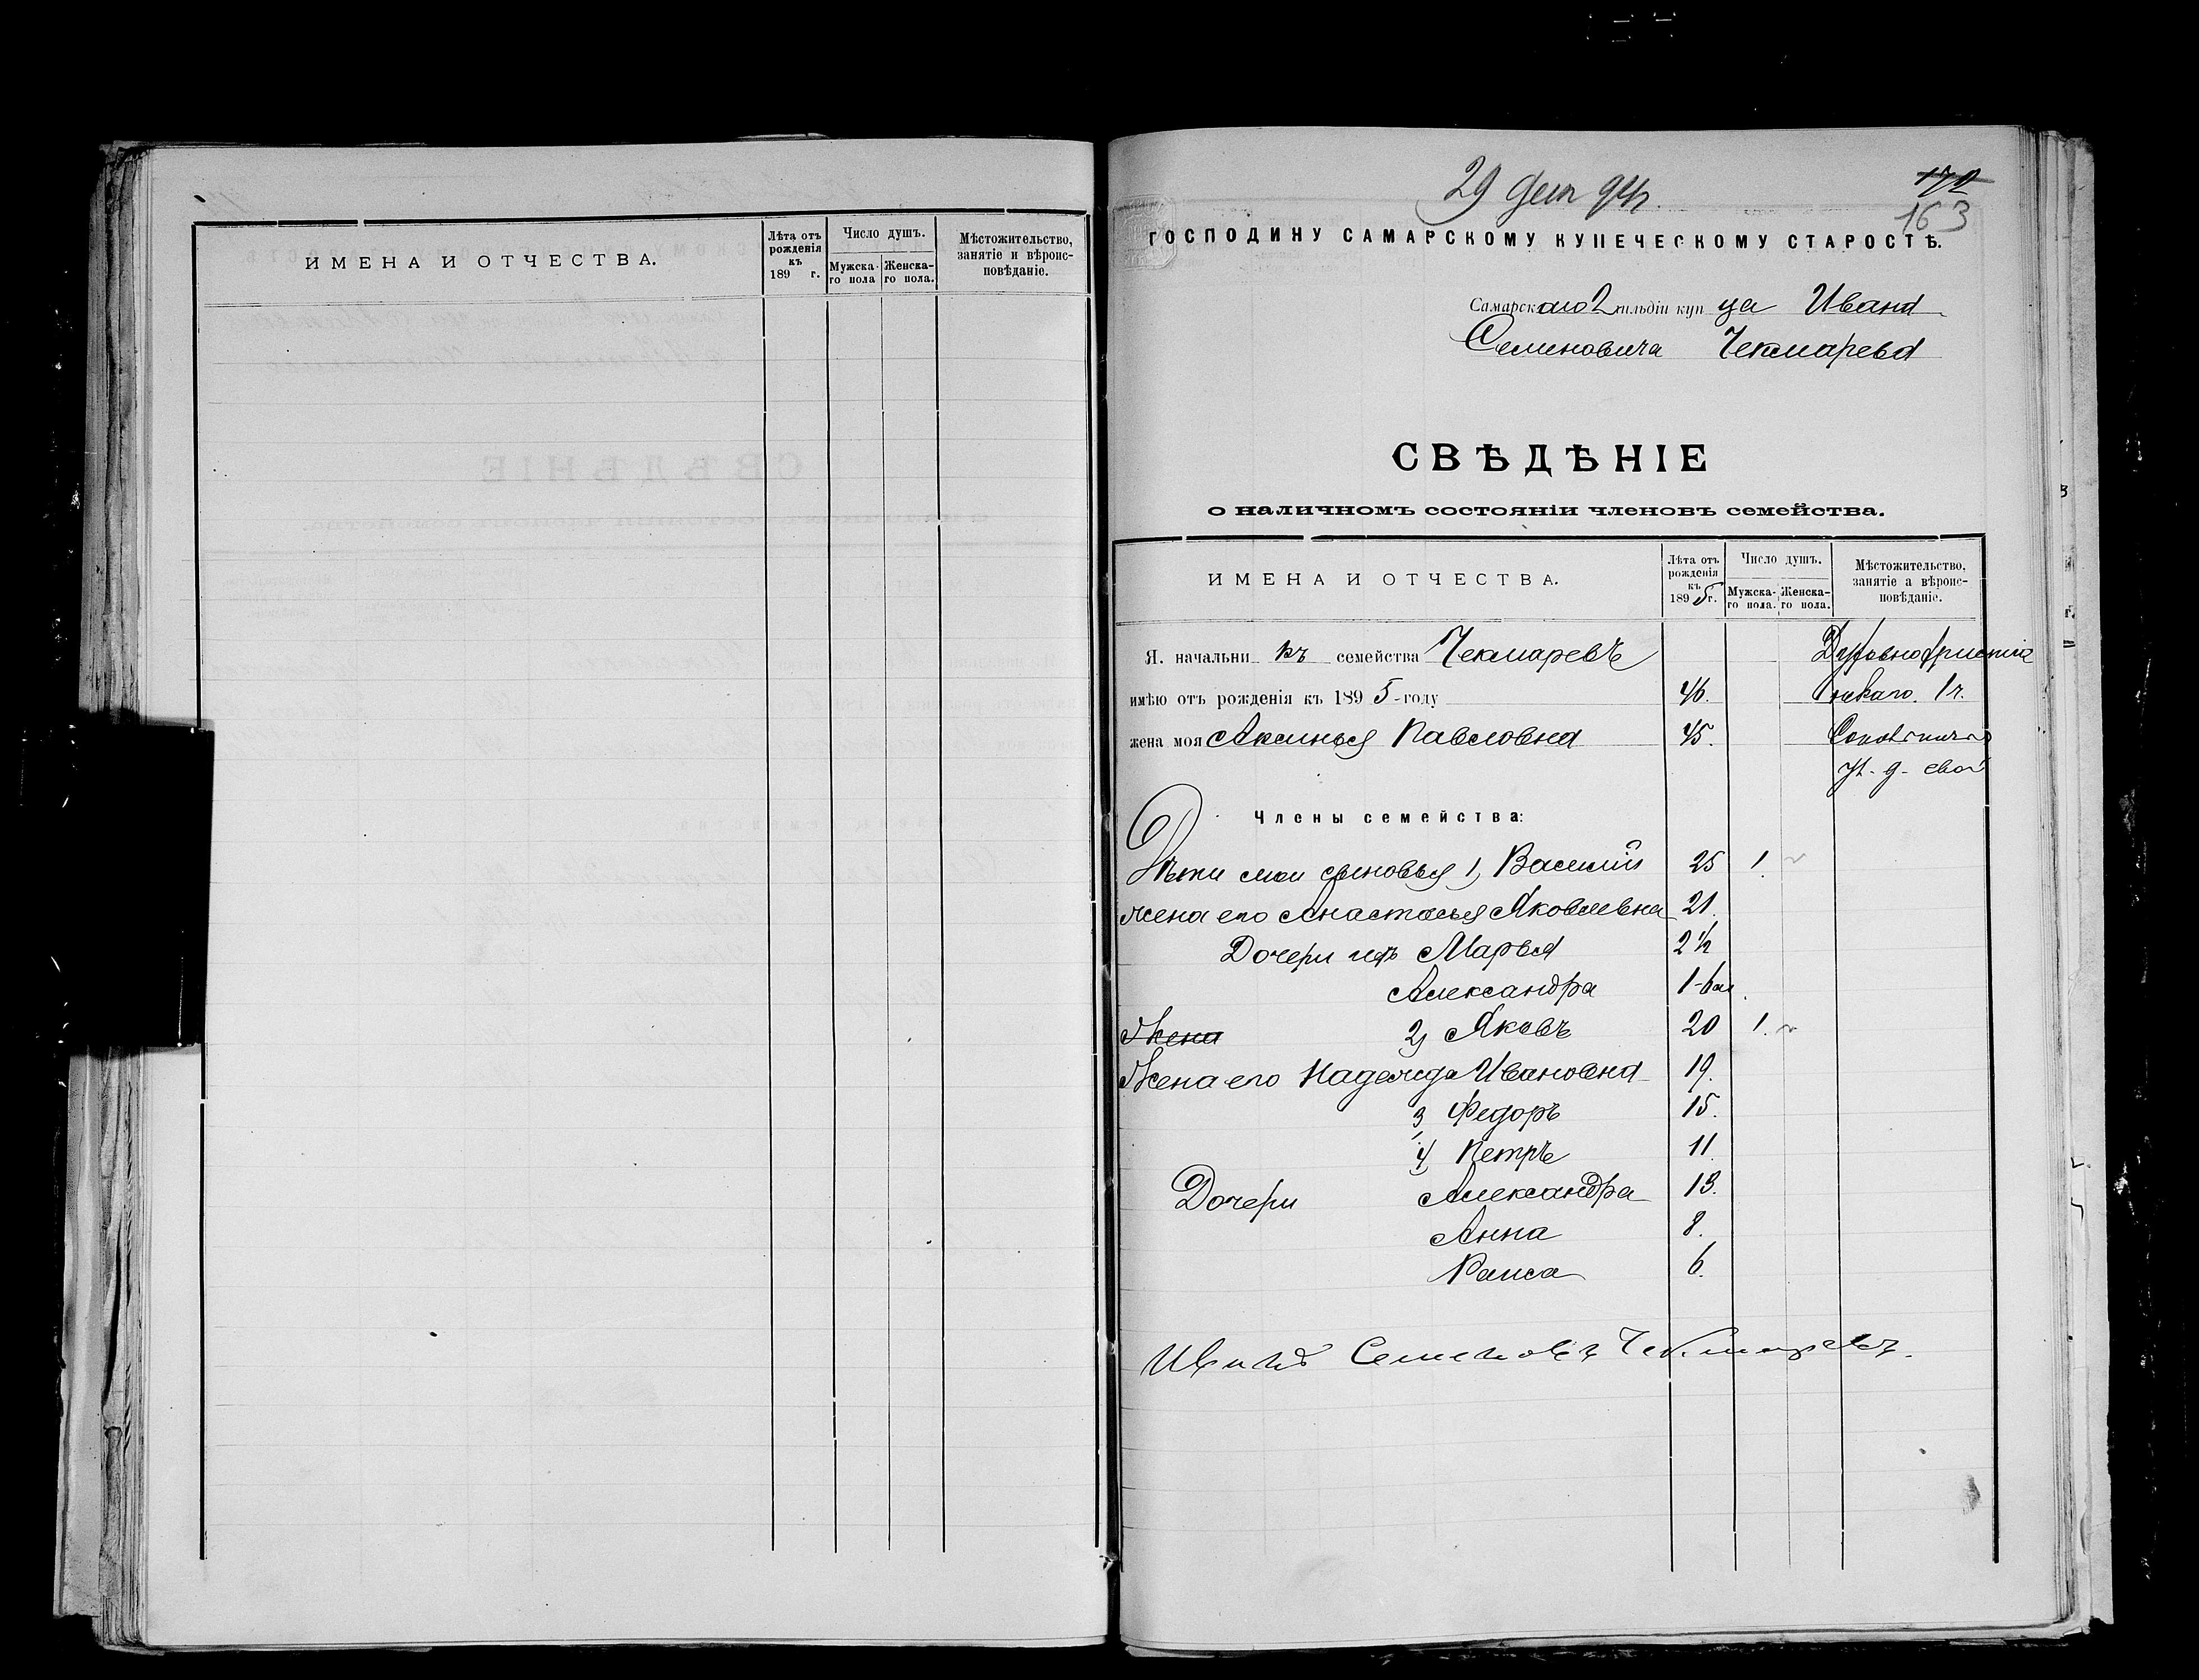 ИМЕНА И ОТЧЕСТВА.
Лѣта отъ рожденія къ 189 г.
Число душъ.
Мужска-го пола
Женска-го пола.
Мѣстожительство, занятіе и вѣроис-повѣданіе.
29 Дек 94г.
172
163
ГОСПОДИНУ САМАРСКОМУ КУПЕЧЕСКОМУ СТАРОСТѢ.
Самарскаго 2 гильдіи купца Ивана
Семеновича Чекмарева
СВѢДѢНІЕ
о наличномъ состояніи членовъ семейства.
ИМЕНА И ОТЧЕСТВА.
Лѣта отъ рожденія къ 1895 г.
Число душъ.
Мужска-го пола.
Женска-го пола.
Мѣстожительство, занятіе а вѣроис-повѣданіе.
Я. начальникъ семейства Чекмаревъ
имѣю отъ рожденія къ 1895-году 46. 1 ч.
жена моя Аксинья Павловна 45.
ул. д. свой
Члены семейства:
Дѣти мои сыновья 1, Василій 25 1.
жена его Анастасья Яковлевна 21.
Дочери ихъ Марья 2½
Александра 1-
Жена 2, Яковъ 20 1.
Жена его Надежда Ивановна 19.
3, Федоръ 15.
4, Петръ 11.
Дочери Александра 13.
Анна 8.
Раиса 6.
Иванъ Семеновъ Чекмаревъ.